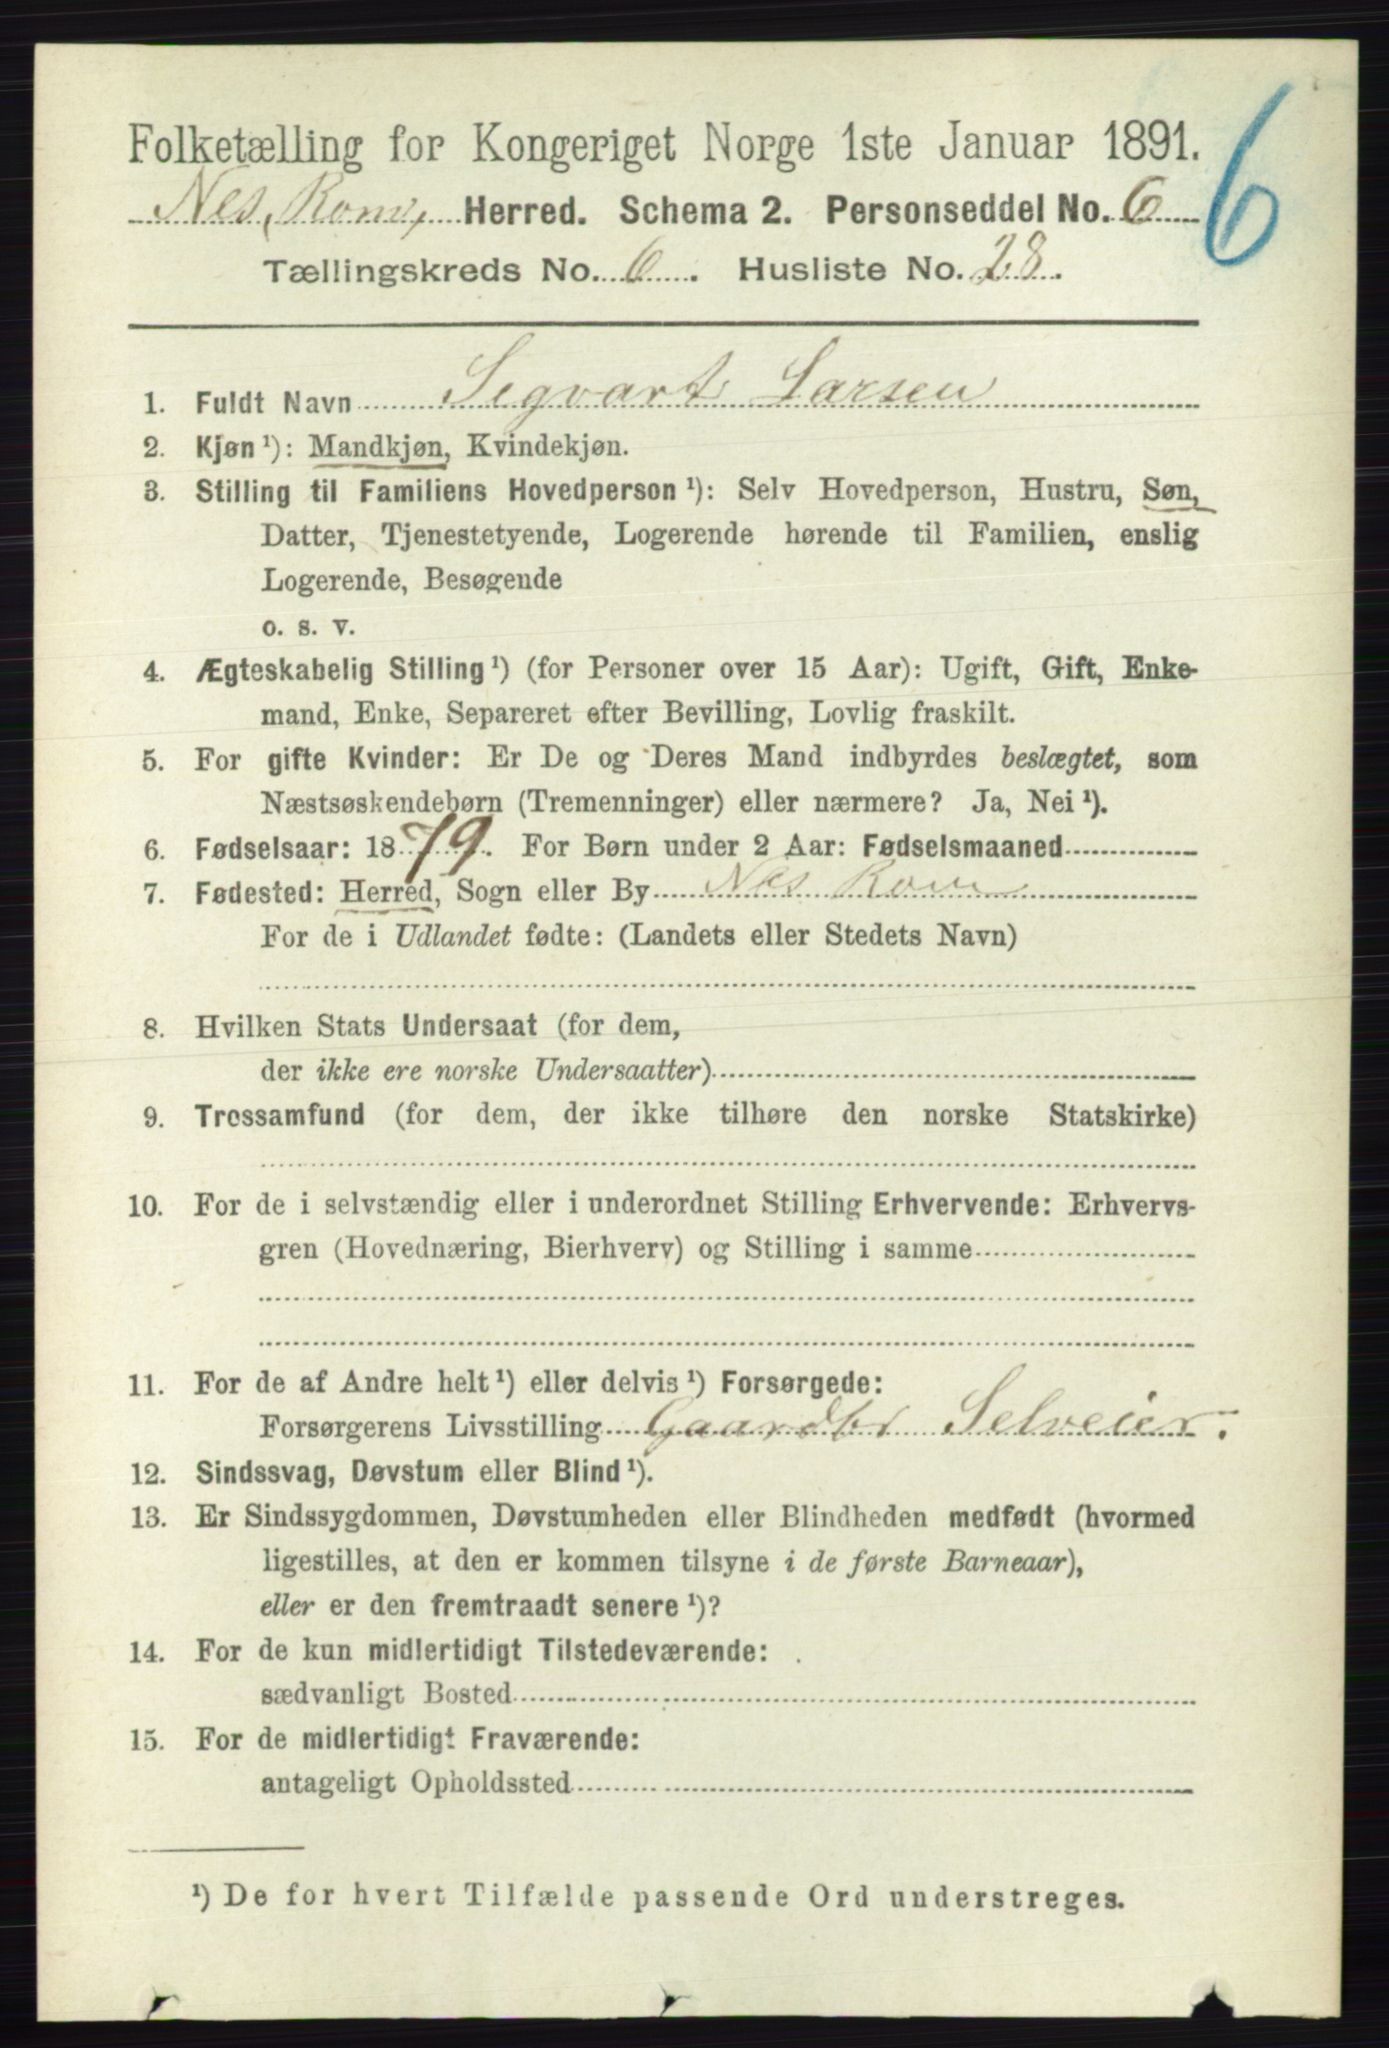 6
Folketælling for Kongeriget Norge 1ste Januar 1891.
Nes, Rom, Herred. Schema 2. Personseddel No. 6
Tællingskreds No. 6. Husliste No. 28.
1. Fuldt Navn Segvart Larsen
2. Kjøn ¹): Mandkjøn, Kvindekjøn.
3. Stilling til Familiens Hovedperson ¹): Selv Hovedperson, Hustru, Søn,
Datter, Tjenestetyende, Logerende hørende til Familien, enslig
Logerende, Besøgende
o. s. v.
4. Ægteskabelig Stilling ¹) (for Personer over 15 Aar): Ugift, Gift, Enke-
mand, Enke, Separeret efter Bevilling, Lovlig fraskilt.
5. For gifte Kvinder: Er De og Deres Mand indbyrdes beslægtet, som
Næstsøskendebørn (Tremenninger) eller nærmere? Ja, Nei ¹).
6. Fødselsaar: 1879. For Børn under 2 Aar: Fødselsmaaned
7. Fødested: Herred, Sogn eller By Nes Rom
For de i Udlandet fødte: (Landets eller Stedets Navn)
8. Hvilken Stats Undersaat (for dem,
der ikke ere norske Undersaatter)
9. Trossamfund (for dem, der ikke tilhøre den norske Statskirke)
10. For de i selvstændig eller i underordnet Stilling Erhvervende: Erhvervs-
gren (Hovednæring, Bierhverv) og Stilling i samme
11. For de af Andre helt ¹) eller delvis ¹) Forsørgede:
Forsørgerens Livsstilling Gaardbr Selveier.
12. Sindssvag, Døvstum eller Blind ¹).
13. Er Sindssygdommen, Døvstumheden eller Blindheden medfødt (hvormed
ligestilles, at den er kommen tilsyne i de første Barneaar),
eller er den fremtraadt senere ¹)?
14. For de kun midlertidigt Tilstedeværende:
sædvanligt Bosted
15. For de midlertidigt Fraværende:
antageligt Opholdssted
¹) De for hvert Tilfælde passende Ord understreges.